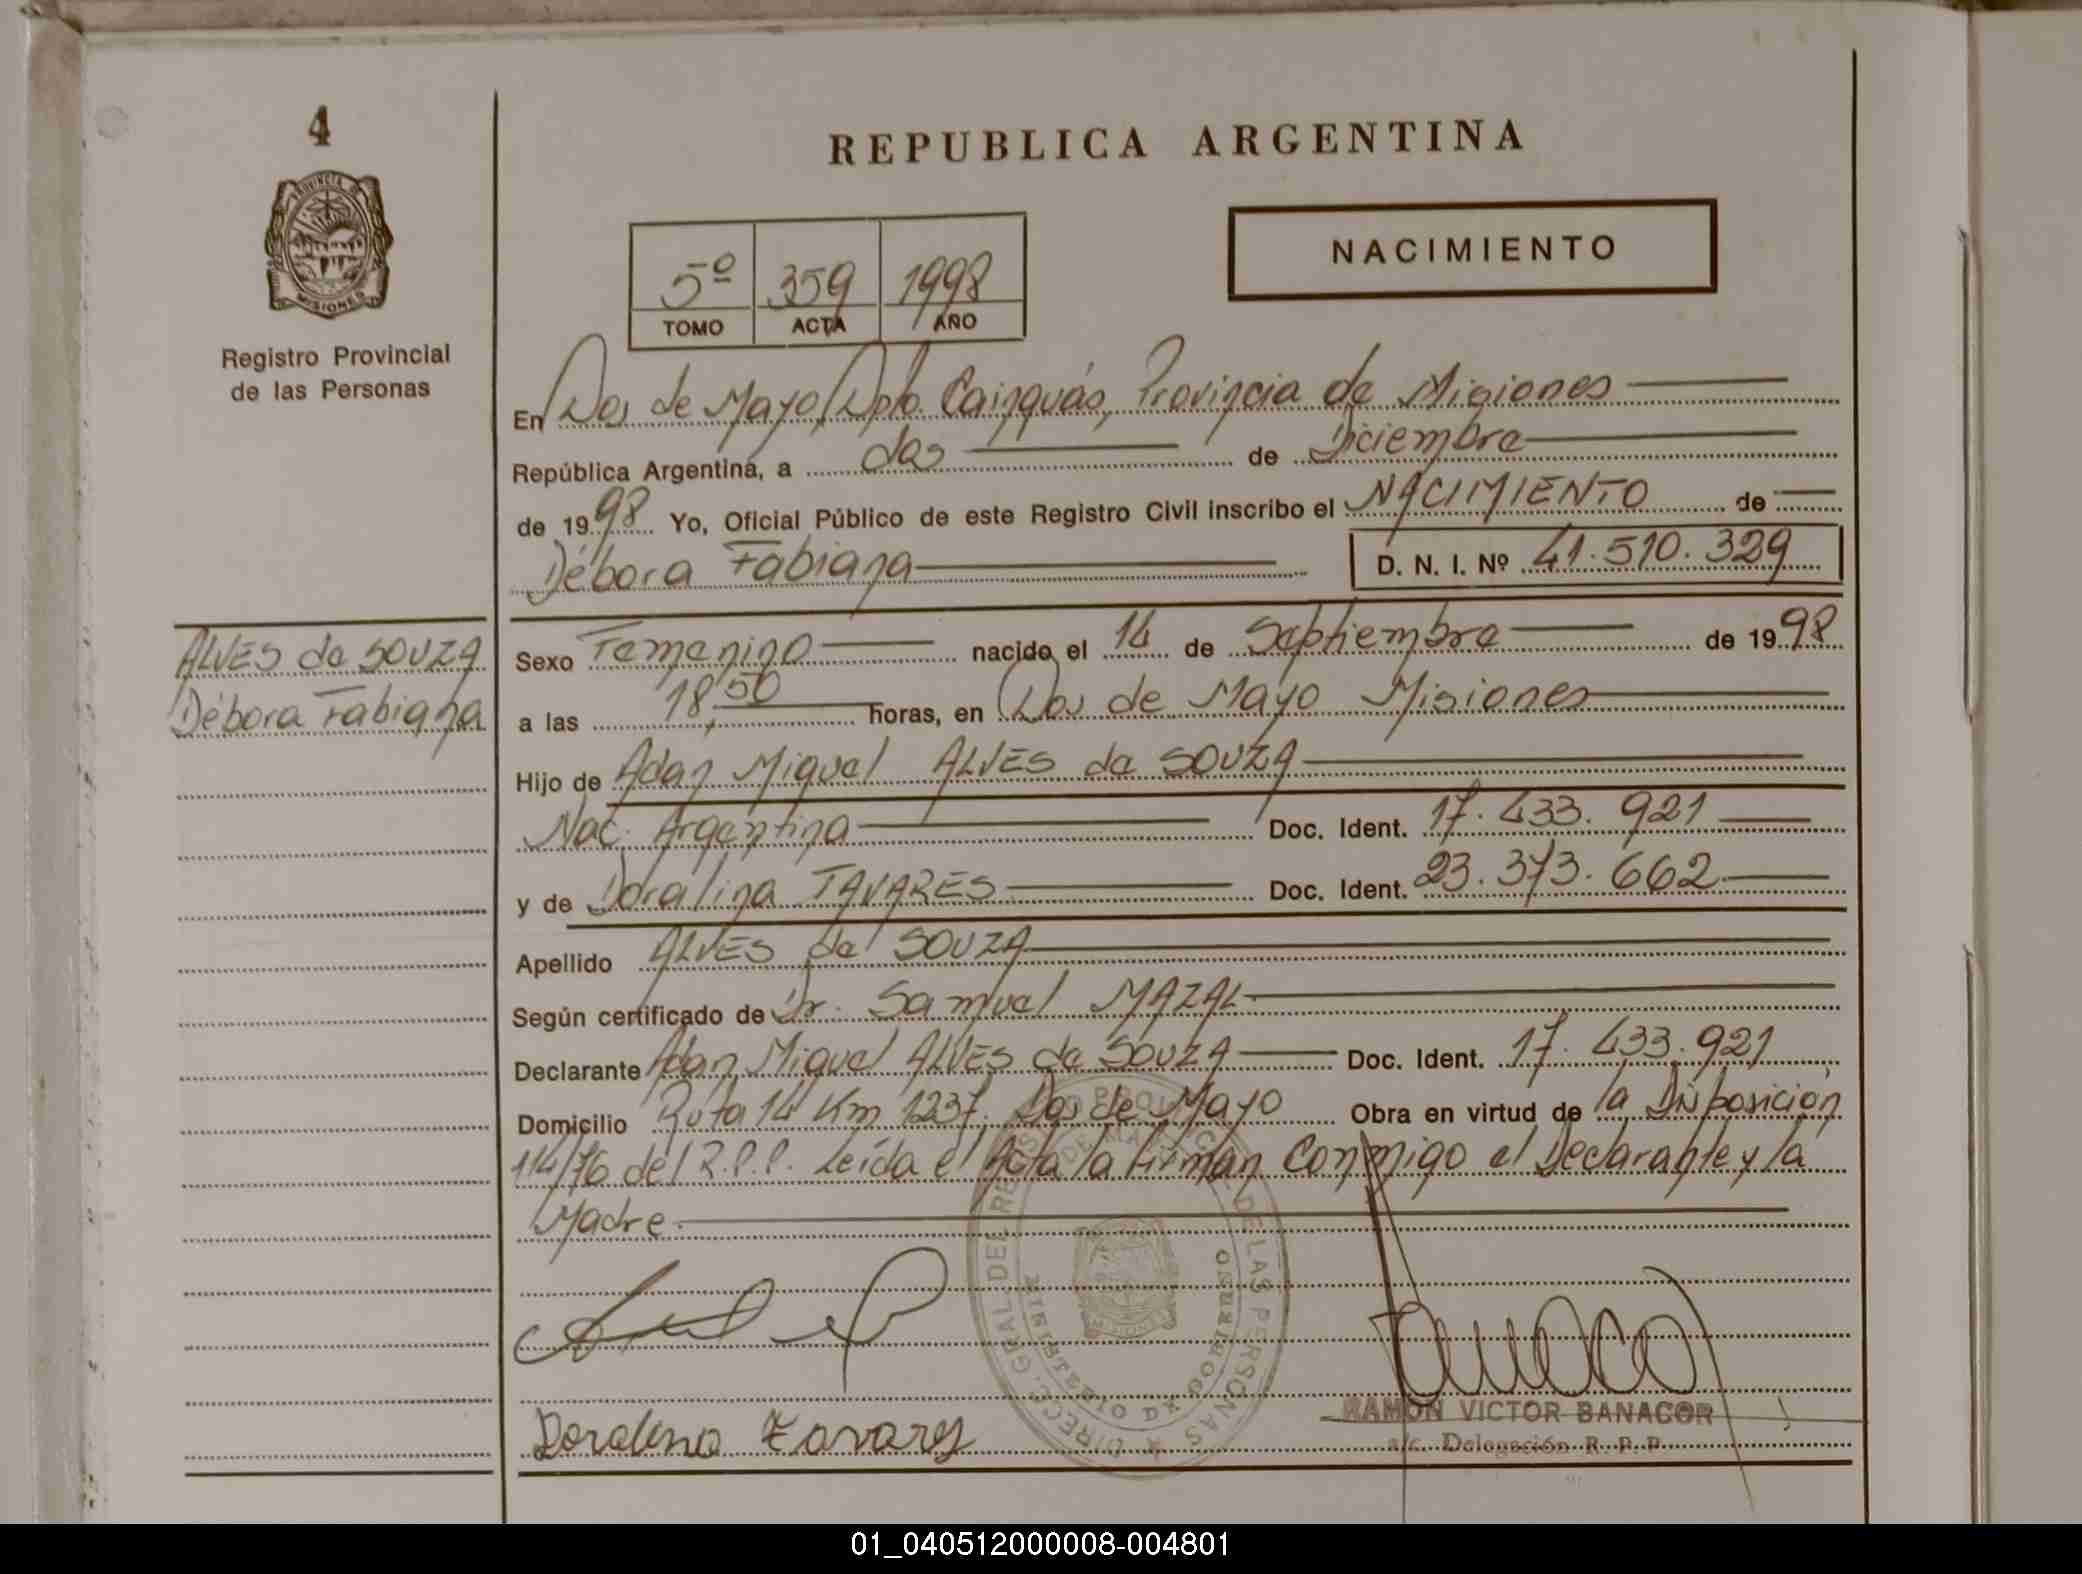 4
PROVINCIA DE
MISIONES
Registro Provincial
de las Personas
ALVES da SOUZA
Débora Fabiana
REPUBLICA ARGENTINA
5º 359 1998
TOMO ACTA AÑO
NACIMIENTO
En Dos de Mayo, Dpto. Cainguás, Provincia de Misiones
República Argentina, a dos de Diciembre
de 1998 Yo, Oficial Público de este Registro Civil inscribo el NACIMIENTO de
Débora Fabiana D. N. I. Nº 41.510.329
Sexo Femenino nacido el 14 de Septiembre de 1998
a las 18,50 horas, en Dos de Mayo Misiones
Hijo de Adan Miguel ALVES da SOUZA
Nac. Argentina Doc. Ident. 17.433.921
y de Doralina TAVARES Doc. Ident. 23.373.662
Apellido ALVES da SOUZA
Según certificado de Dr. Samuel MAZAL
Declarante Adan Miguel ALVES da SOUZA Doc. Ident. 17.433.921
Domicilio Ruta 14 Km 1237. Dos de Mayo Obra en virtud de la Disposición
114/76 del R.P.P. Leída el Acta la firman Conmigo el Declarante y la
Madre.
Doralina Tavares
RAMON VICTOR BANACOR
a/c. Delegación R. P. P.
01_040512000008-004801